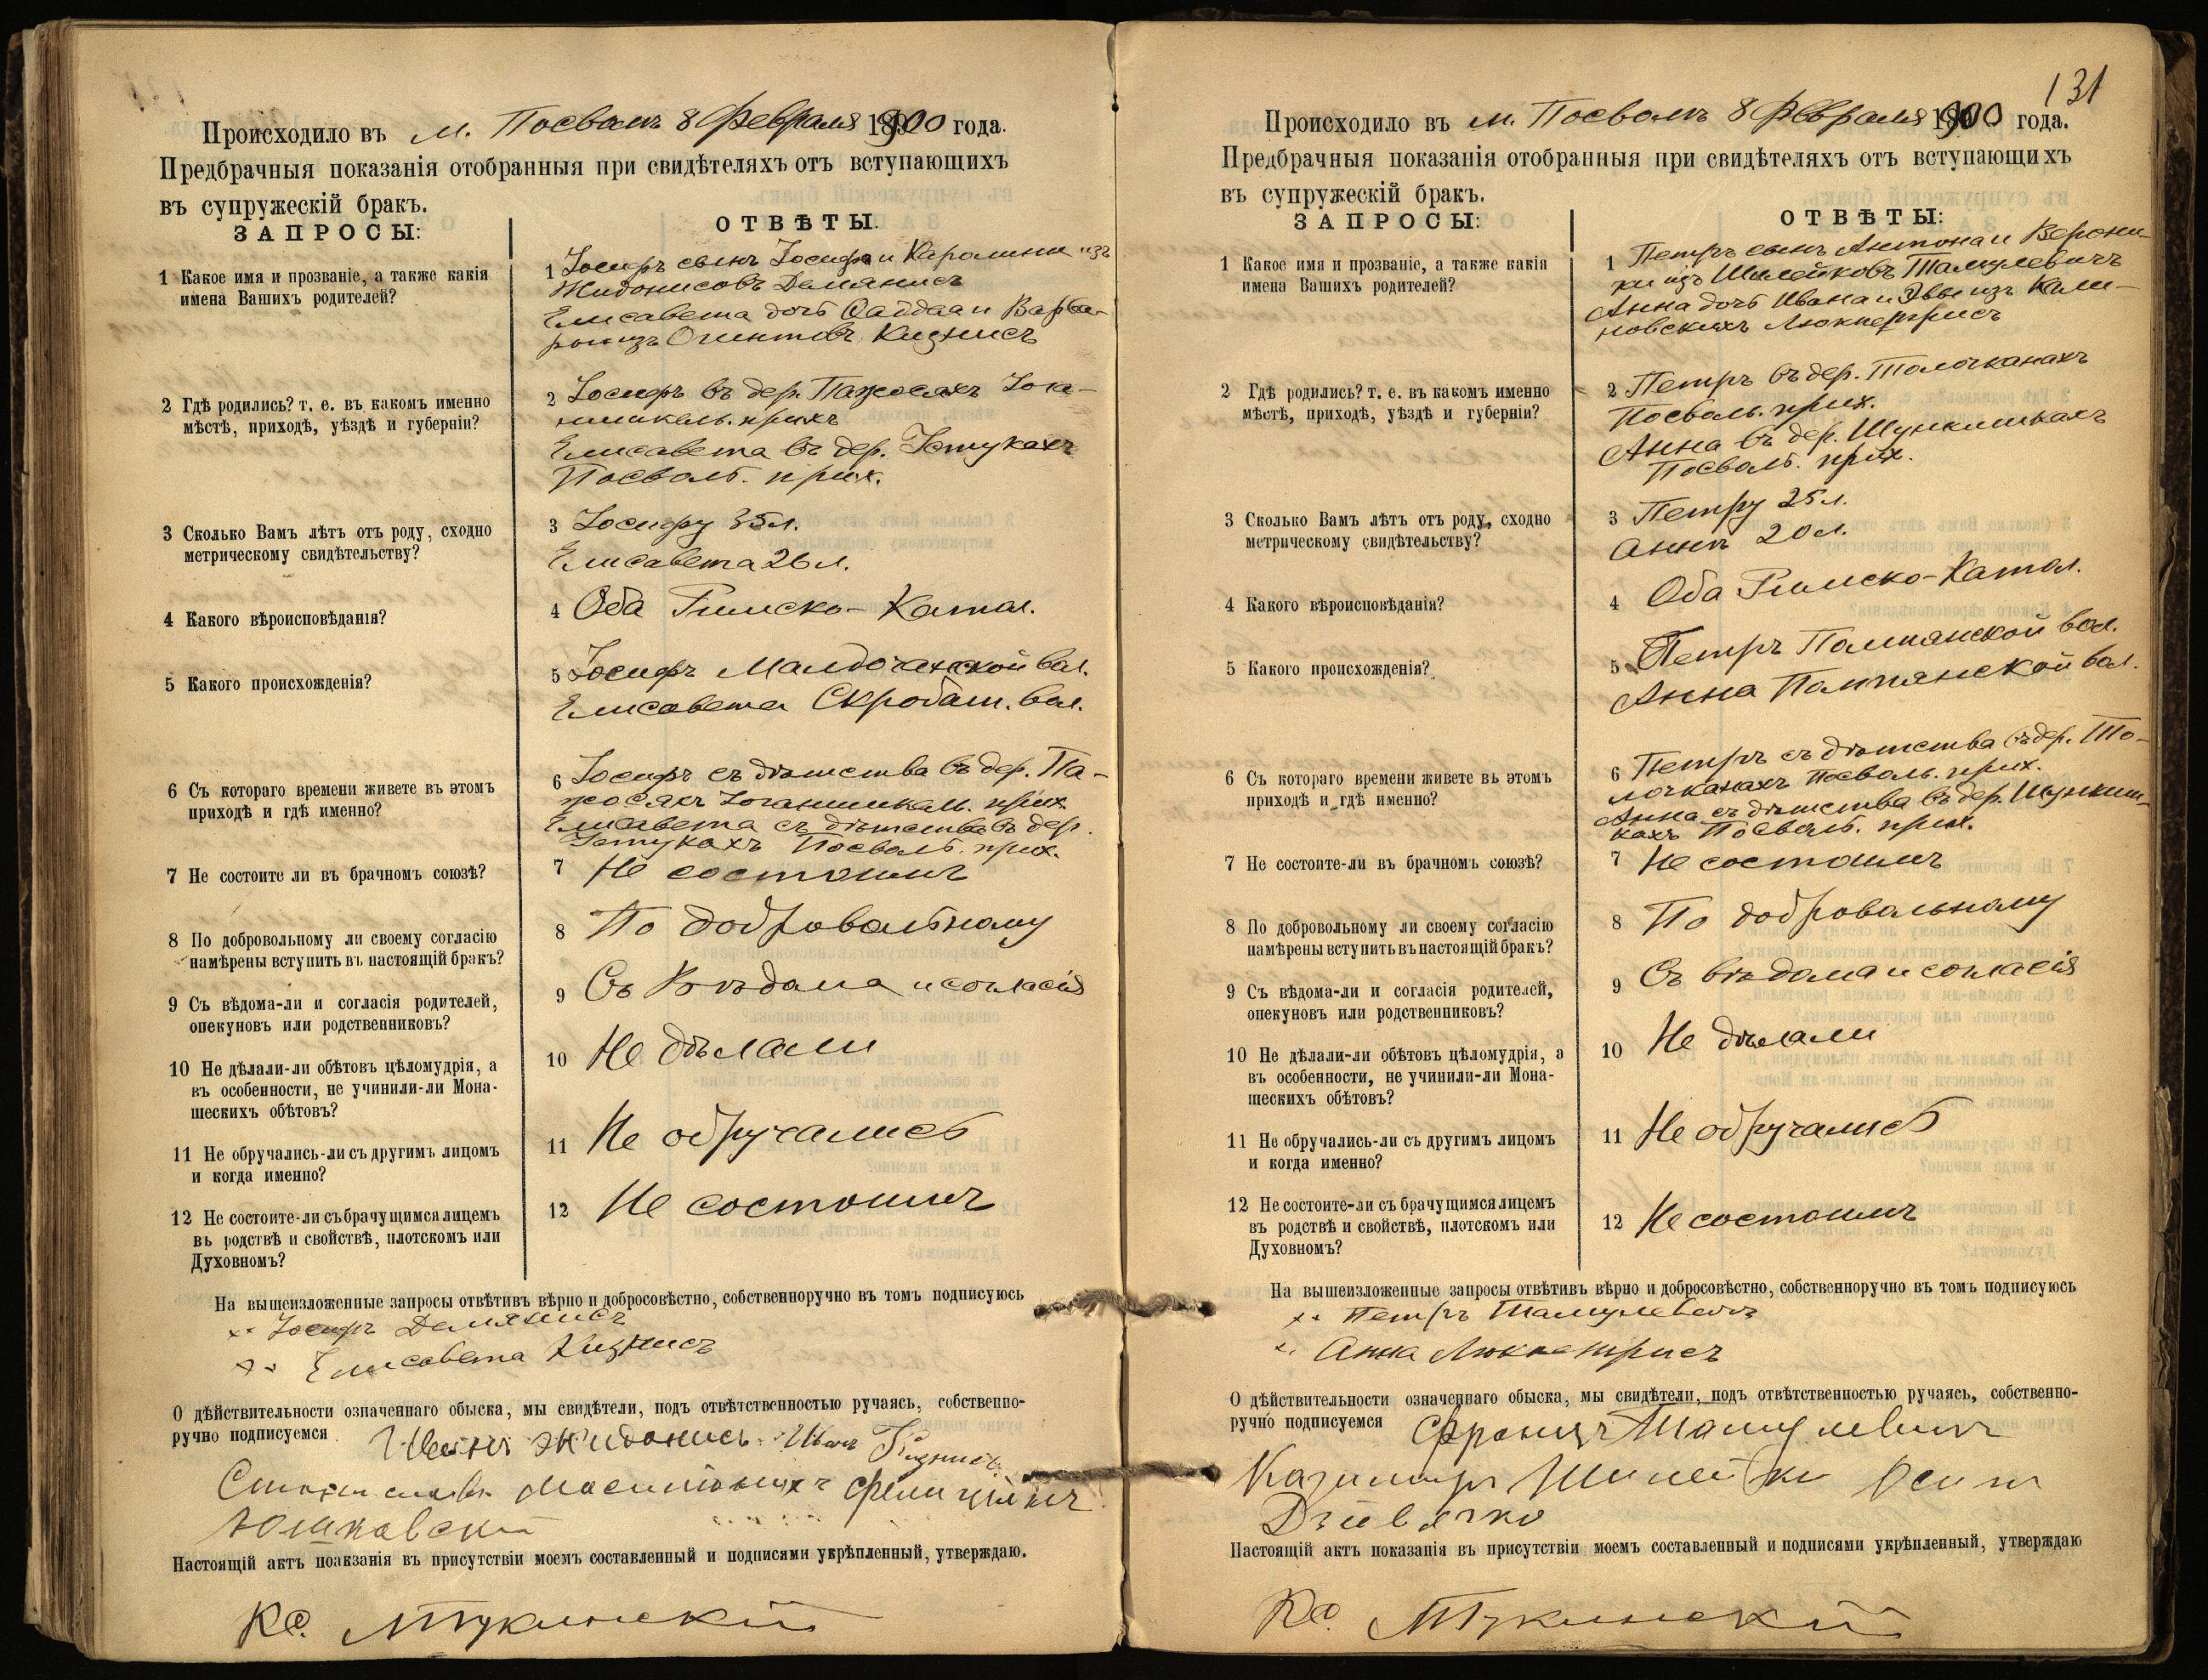 Происходило въ м. Посволь 8 Февраля 1900 года.
Предбрачныя показанія отобранныя при свидѣтеляхъ отъ вступающихъ
въ супружескій бракъ.
ЗАПРОСЫ:
ОТВѢТЫ.
1 Какое имя и прозваніе, а также какія
имена Вашихъ родителей?
1 Іосифъ сынъ Іосифа и Каролины изъ
Жидонисовъ Делянисъ
Елисавета дочь и Варва-
ры изъ Кизнисъ
2 Гдѣ родились? т. е. въ какомъ именно
мѣстѣ, приходѣ, уѣздѣ и губерніи?
2 Іосифъ въ дер. Пажосяхъ Іога-
нишкель. прихъ
Елисавета въ дер.
Посволь. прих.
3 Сколько Вамъ лѣтъ отъ роду, сходно
метрическому свидѣтельству?
3 Іосифу 35 л.
Елисавета 26 л.
4 Какого вѣроисповѣданія?
4 Оба Римско-Катол.
5 Какого происхожденія?
5 Іосифъ вол.
Елисавета Скробот. вол.
6 Съ котораго времени живете въ этомъ
приходѣ и гдѣ именно?
6 Іосифъ съ дѣтства въ дер. Па-
жосяхъ Іоганишкель. прих
Елисавета съ дѣтства въ дер.
Посволь. прих.
7 Не состоите ли въ брачномъ союзѣ?
7 Не состоимъ
8 По добровольному ли своему согласію
намѣрены вступить въ настоящій бракъ?
8 По добровольному
9 Съ вѣдома-ли и согласія родителей,
опекуновъ или родственниковъ?
9 Съ вѣдома и согласія
10 Не дѣлали-ли обѣтовъ цѣломудрія, а
въ особенности, не учинили-ли Мона-
шескихъ обѣтовъ?
10 Не дѣлали
11 Не обручались-ли съ другимъ лицомъ
и когда именно?
11 Не обручались
12 Не состоите-ли съ брачущимся лицемъ
въ родствѣ и свойствѣ, плотскомъ или
Духовномъ?
12 Не состоимъ
На вышеизложенные запросы отвѣтивъ вѣрно и добросовѣстно, собственноручно въ томъ подписуюсь
Іосифъ Делянисъ
Елисавета Кизнисъ
О дѣйствительности означеннаго обыска, мы свидѣтели, подъ отвѣтственностью ручаясь, собственно-
ручно подписуемся Жидонись Иванъ
Юшковскій
Настоящій актъ поакзанія въ присутствіи моемъ составленный и подписями укрѣпленный, утверждаю.
Кс. Тукинскій
131
Происходило въ м. Посволь 8 Февраля 1900 года.
Предбрачныя показанія отобранныя при свидѣтеляхъ отъ вступающихъ
въ супружескій бракъ.
ЗАПРОСЫ:
ОТВѢТЫ:
1 Какое имя и прозваніе, а также какія
имена Вашихъ родителей?
1 Петръ сынъ Антона и Верони-
ки изъ Шилейковъ Тамулевичъ
Анна дочь Ивана и Эвы изъ Кали-
новскихъ Люкпетрисъ
2 Гдѣ родились? т. е. въ какомъ именно
мѣстѣ, приходѣ, уѣздѣ и губерніи?
2 Петръ въ дер. Толочканахъ
Посволь. прих.
Анна въ дер.
Посволь. прих.
3 Сколько Вамъ лѣтъ отъ роду, сходно
метрическому свидѣтельству?
3 Петру 25 л.
Аннѣ 20 л.
4 Какого вѣроисповѣданія?
4 Оба Римско-Катол.
5 Какого происхожденія?
5 Петръ Помпянской вол.
Анна Помпянской вол.
6 Съ котораго времени живете въ этомъ
приходѣ и гдѣ именно?
6 Петръ съ дѣтства въ дер. То-
лочканахъ Посволь. прих.
Анна съ дѣтства въ дер.
Посволь. прих.
7 Не состоите-ли въ брачномъ союзѣ?
7 Не состоимъ
8 По добровольному ли своему согласію
намѣрены вступить въ настоящій бракъ?
8 По добровольному
9 Съ вѣдома-ли и согласія родителей,
опекуновъ или родственниковъ?
9 Съ вѣдома и согласія
10 Не дѣлали-ли обѣтовъ цѣломудрія, а
въ особенности, не учинили-ли Мона-
шескихъ обѣтовъ?
10 Не дѣлали
11 Не обручались-ли съ другимъ лицомъ
и когда именно?
11 Не обручались
12 Не состоите-ли съ брачущимся лицемъ
въ родствѣ и свойствѣ, плотскомъ или
Духовномъ?
12 Не состоимъ
На вышеизложенные запросы отвѣтивъ вѣрно и добросовѣстно, собственноручно въ томъ подписуюсь
Петръ Тамулевичъ
Анна Люкпетрисъ
О дѣйствительности означеннаго обыска, мы свидѣтели, подъ отвѣтственностью ручаясь, собственно-
ручно подписуемся Францъ Тамулевичъ
Казимиръ Шилейко Осипъ
Настоящій актъ показанія въ присутствіи моемъ составленный и подписями укрѣпленный, утверждаю
Кс. Тукинскій